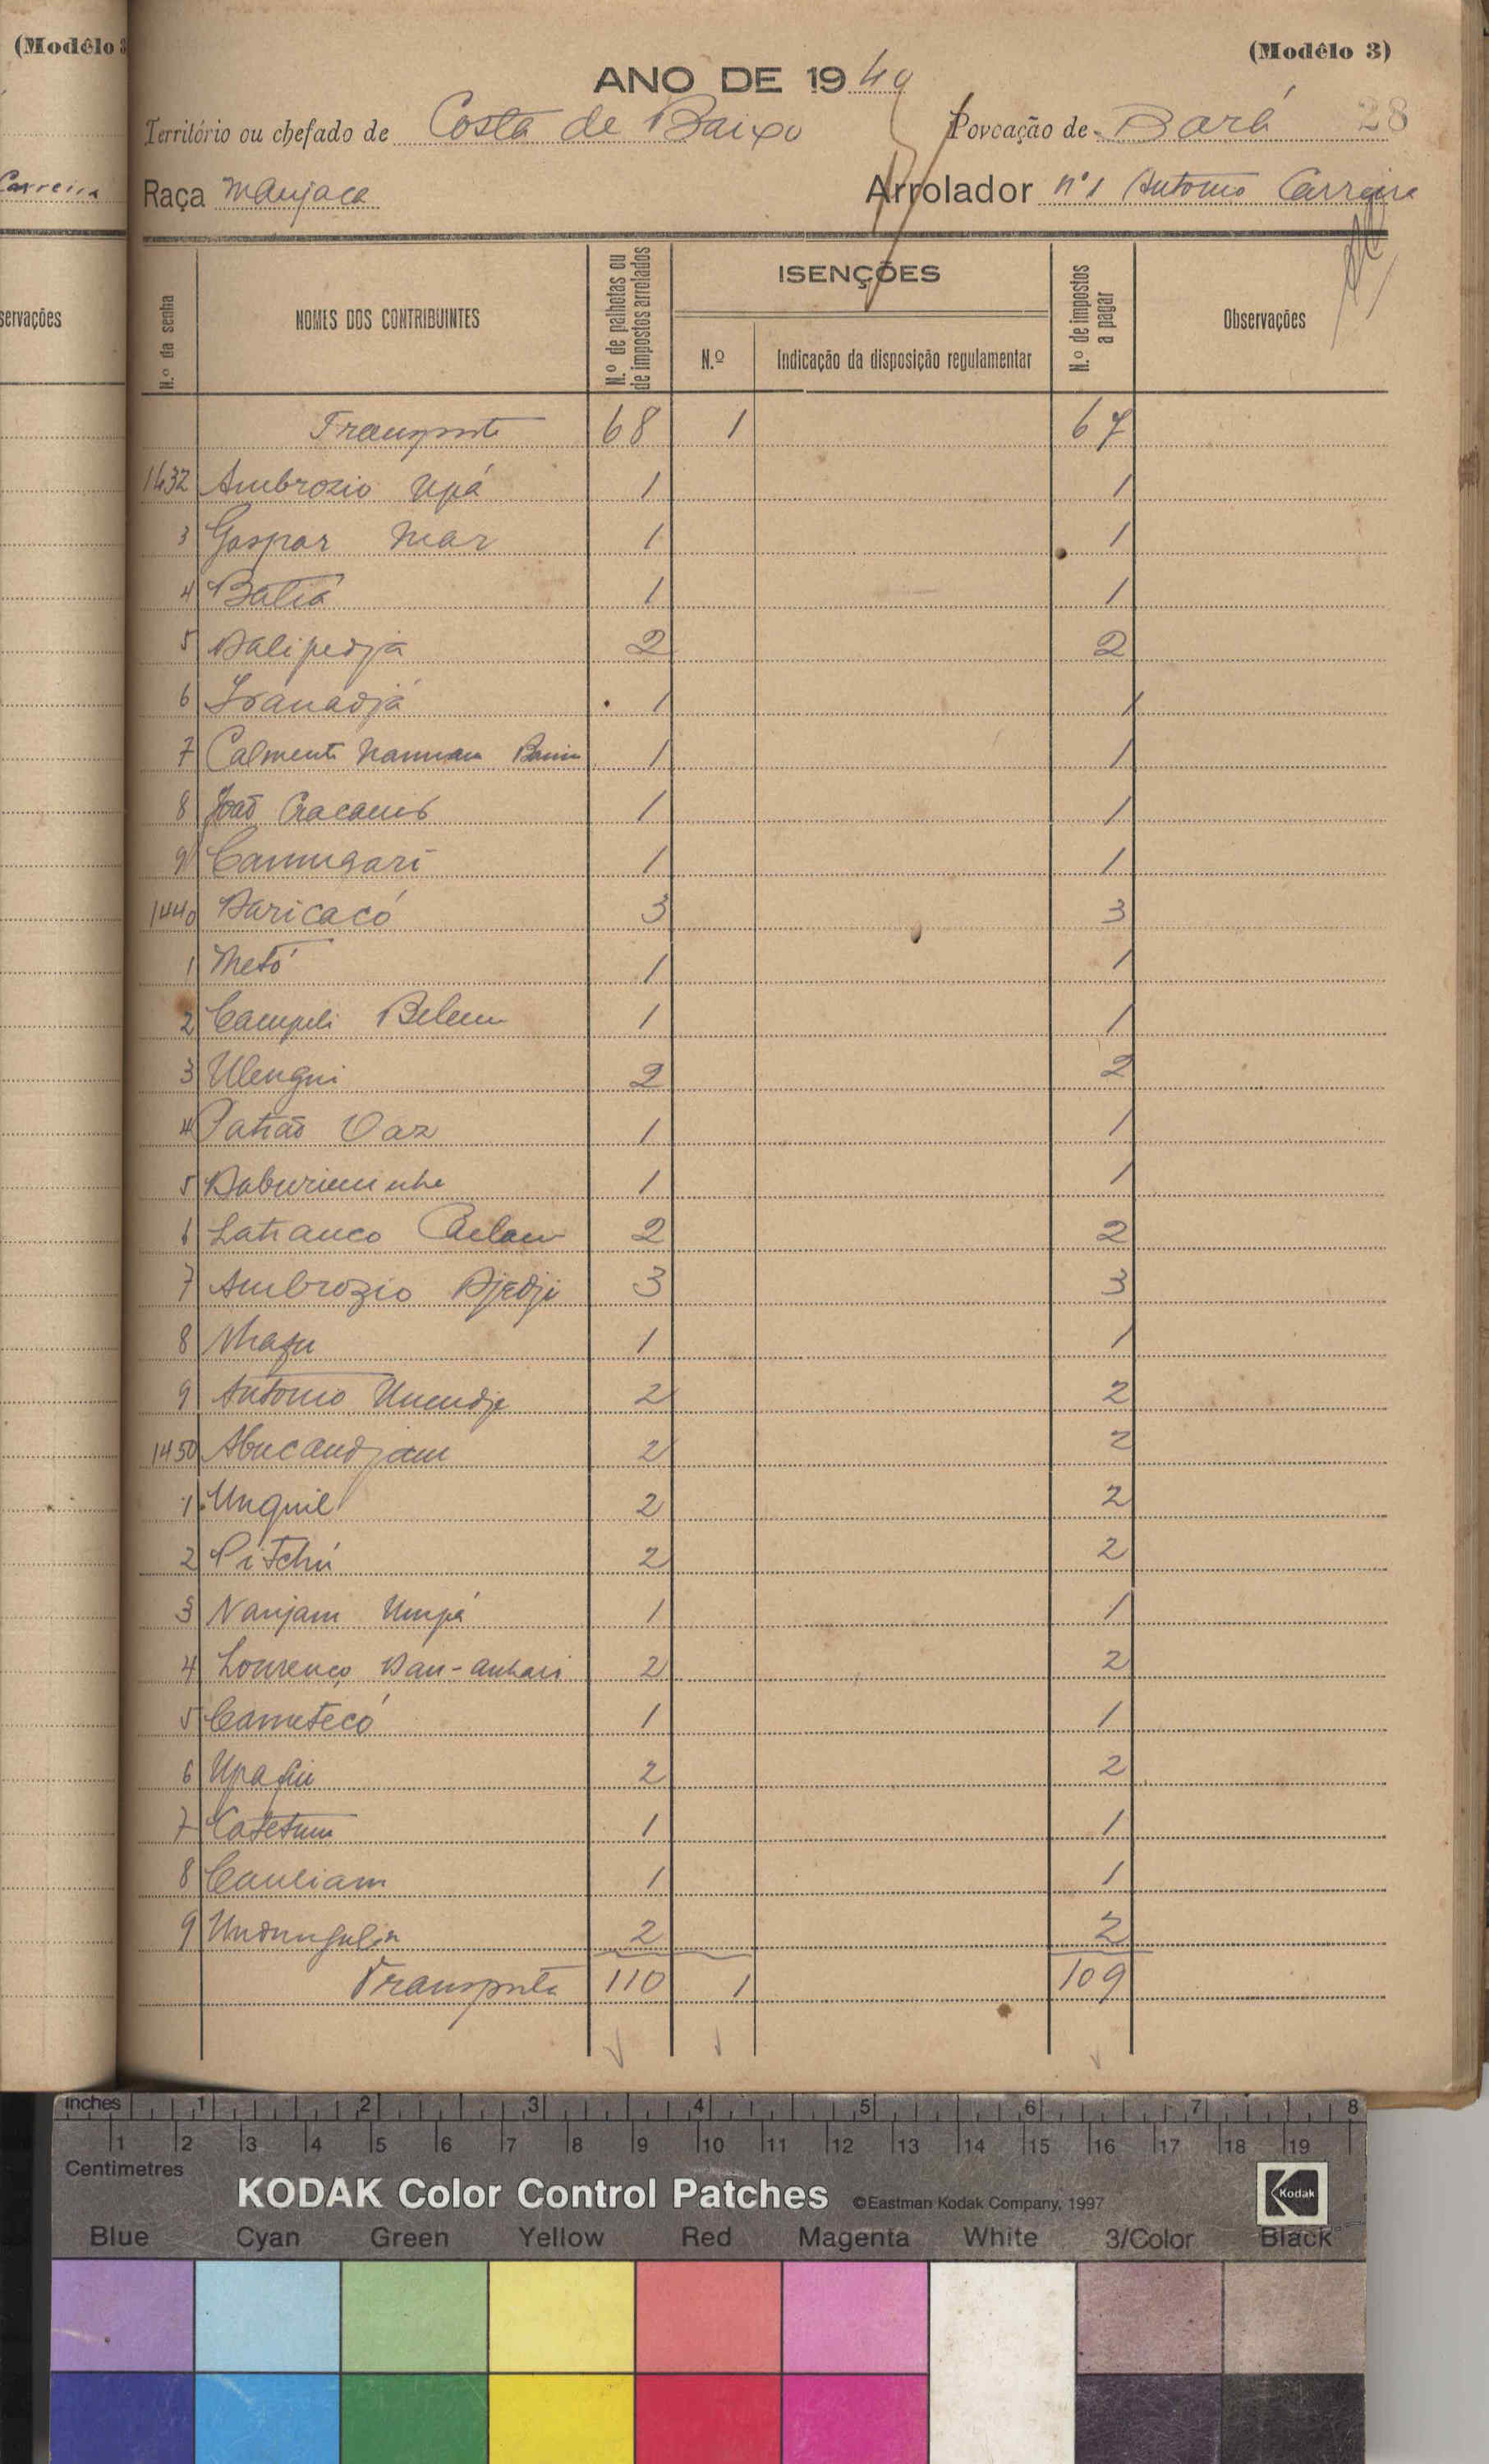 (Modêlo 3
(Modêlo 3)
ANO DE 1949
Território ou chefado de Costa de Baixo Povoação de Bará 28
Carreira
Raça Manjaca Arrolador nº1 Antonio Carreira
servações
N.º da senha
NOMES DOS CONTRIBUINTES
N.º de palhotas ou de impostos arrolados
ISENÇÕES
N.º
Indicação da disposição regulamentar
N.º de impostos a pagar
Observações
Transporte 68 1 67
1432 Ambrozio Upá 1 1
3 Gaspar Mar 1 1
4 Batiá 1 1
5 Dalipedja 2 2
6 Iranadjá 1 1
7 Calmente 1 1
8 João 1 1
9 1 1
1440 Daricacó 3 3
1 Metó 1 1
2 Campeli Belem 1 1
3 Ulengui 2 2
4 Vaz 1 1
5 1 1
6 2 2
7 Ambrozio Djedji 3 3
8 1 1
9 Antonio 2 2
1450 2 2
1 Unguil 2 2
2 Pitchú 2 2
3 Nanjam Umpá 1 1
4 Lourenço 2 2
5 Camutecó 1 1
6 2 2
7 Catetum 1 1
8 Cauliam 1 1
9 2 2
Transporte 110 1 109
inches 1 2 3 4 5 6 7 8
1 2 3 4 5 6 7 8 9 10 11 12 13 14 15 16 17 18 19
Centimetres
KODAK Color Control Patches ©Eastman Kodak Company, 1997 Kodak
Blue Cyan Green Yellow Red Magenta White 3/Color Black